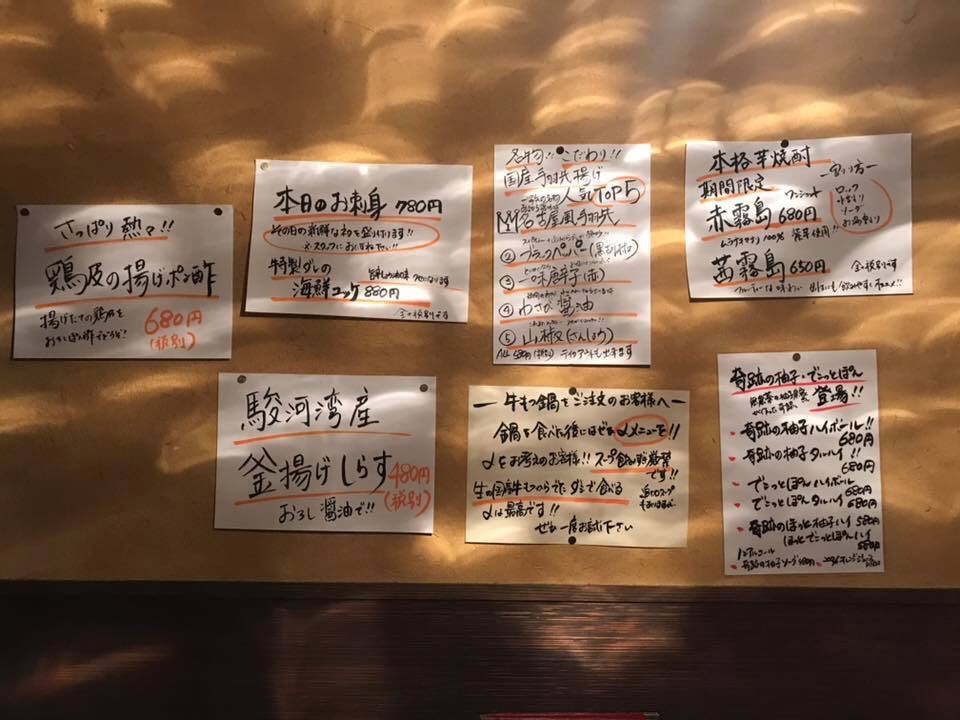 さっぱり 熱々!!
鶏皮の揚げポン酢
揚げたての鶏皮を
おろしぽん酢でどうぞ!
680円
(税別)
本日のお刺身 780円
その日の新鮮なネタを盛り付けます!!
※スタッフにお尋ね下さい!!
特製ダレの
海鮮ユッケ 880円
全て税別です
名物!! こだわり!!
国産手羽先揚げ
人気TOP5
名古屋風手羽先
② ブラックペッパー(黒胡椒)
③ 一味唐辛子(赤)
④ わさび醤油
⑤ 山椒(さんしょう)
ALL 580円(税別) テイクアウトも出来ます
本格芋焼酎
期間限定
ワンショット
赤霧島 680円
ムラサキマサリ 100% 使用!!
茜霧島 650円
全て税別です
ー割り方ー
ロック
水割り
ソーダ
お湯割り
駿河湾産
釜揚げしらす
480円
(税別)
おろし醤油で!!
ー牛もつ鍋をご注文のお客様へー
鍋を食べた後にはぜひ〆メニューを!!
〆をお考えのお客様!! スープ
です!!
生の国産牛もつからでたダシで食べる
〆は最高です!!
ぜひ一度お試し下さい
奇跡の柚子・でこっとぽん
登場!!
・奇跡の柚子ハイボール!!
680円
・奇跡の柚子タルハイ!!
680円
・でこっとぽんハイボール
680円
・でこっとぽんタルハイ
680円
・奇跡のほっと柚子ハイ 580円
ほっとでこっとぽんハイ
580円
ノンアルコール
奇跡の柚子ソーダ